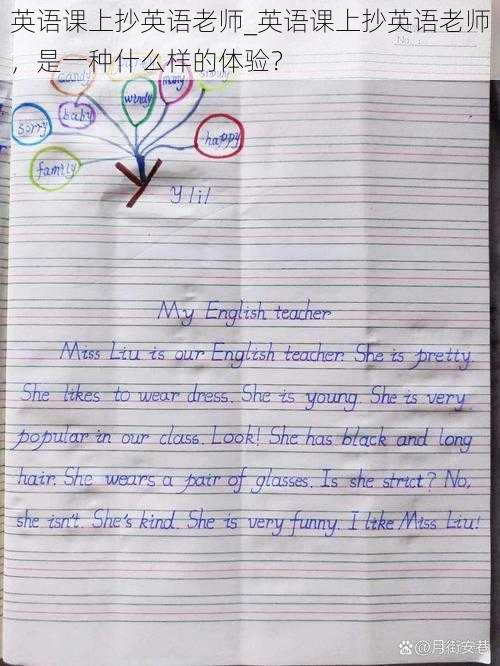 英语课上抄英语老师_英语课上抄英语老师
，是一种什么样的体验？
No.:
candy
windy
many
sorry
baby
happy
family
Y /i/
My English teacher
Miss Liu is our English teacher. She is pretty.
She likes to wear dress. She is young. She is very
popular in our class. Look! She has black and long
hair. She wears a pair of glasses. Is she strict? No,
she isn't. She's kind. She is very funny. I like Miss Liu!
Baidu @月街安巷